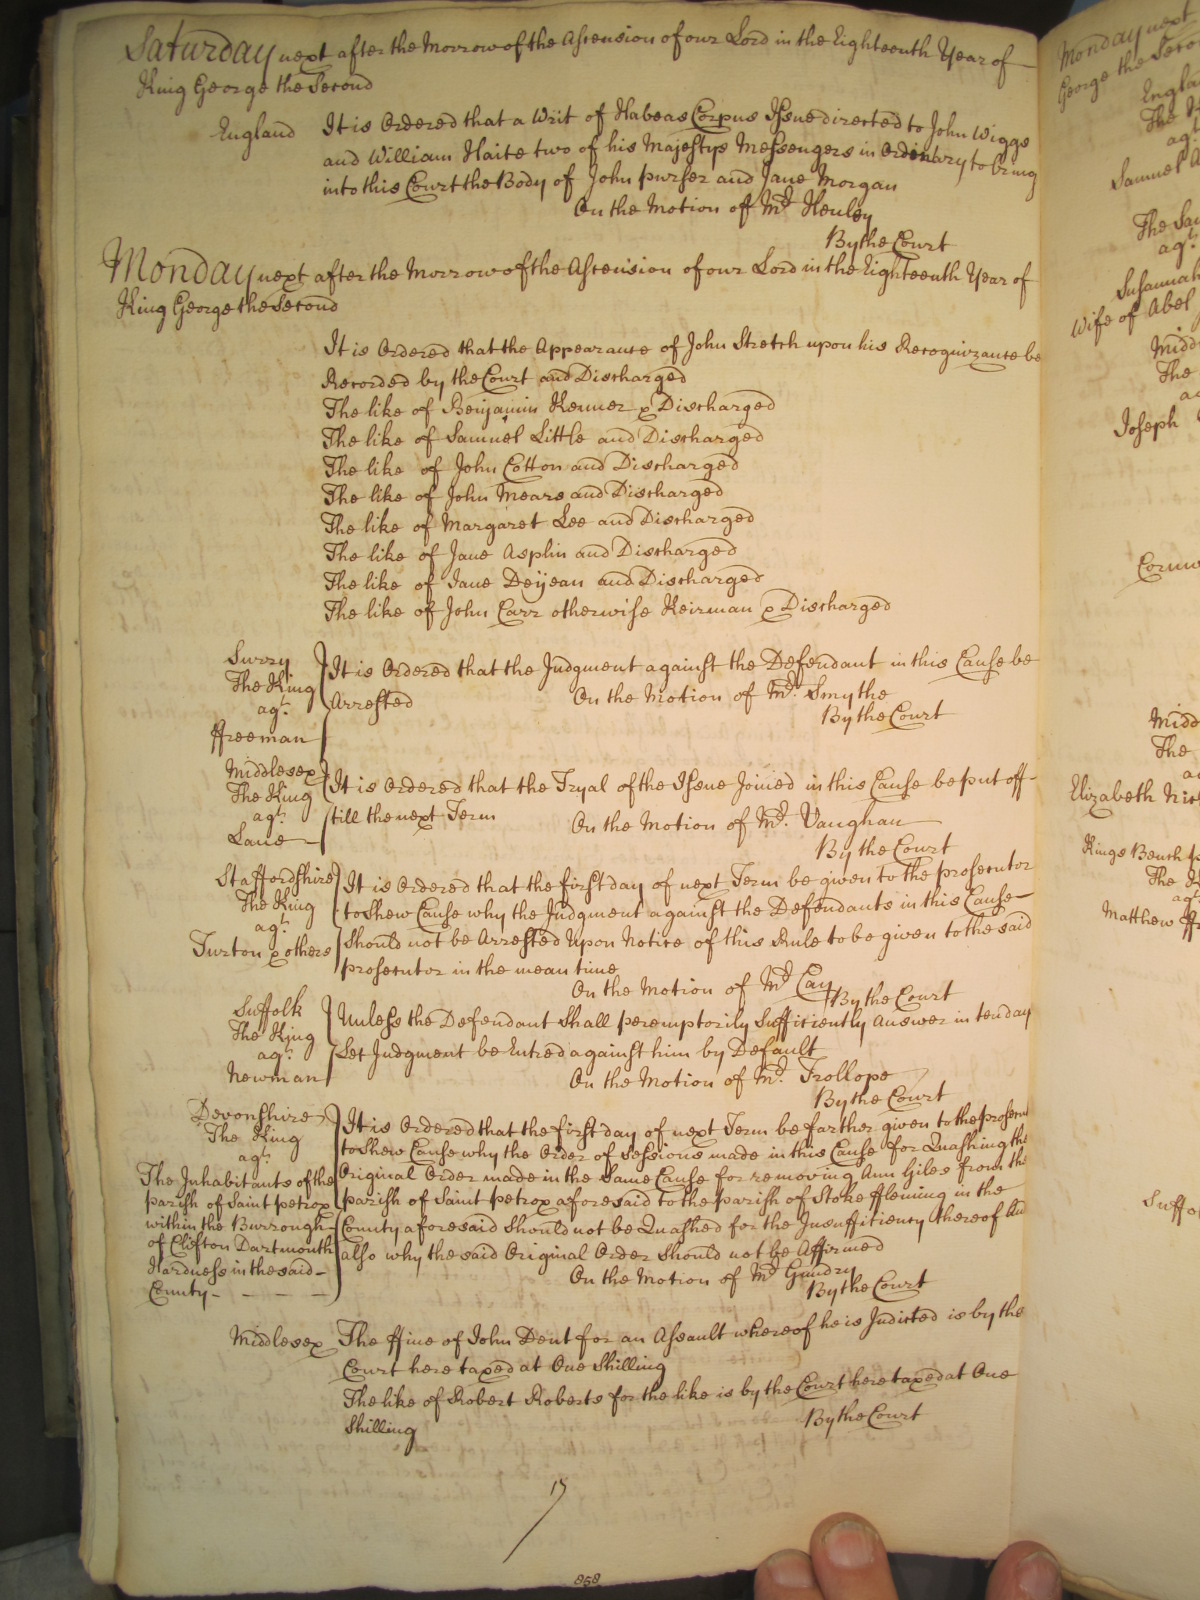 Saturday next after the Morrow of the Ascension of our Lord in the Eighteenth Year of
King George the Second
England It is Ordered that a Writ of Habeas Corpus Issue directed to John Wiggs
and William Haite two of his Majestys Messengers in Ordinary to bring
into this Court the Body of John purser and Jane Morgan
On the Motion of Mr. Henley
By the Court
Monday next after the Morrow of the Ascension of our Lord in the Eighteenth Year of
King George the Second
It is Ordered that the Appearance of John Stretch upon his Recognizance be
Recorded by the Court and Discharged
The like of Benjamin Kenner & Discharged
The like of Samuel Little and Discharged
The like of John Cotton and Discharged
The like of John Mears and Discharged
The like of Margaret Lee and Discharged
The like of Jane Asplin and Discharged
The like of Jane Deijean and Discharged
The like of John Carr otherwise Keirman & Discharged
Surry
The King
agt.
ffreeman
It is Ordered that the Judgment against the Defendant in this Cause be
Arrested On the Motion of Mr. Smythe
By the Court
Middlesex
The King
agt.
Lane
It is Ordered that the Tryal of the Issue Joined in this Cause be put off
till the next Term On the Motion of Mr. Vaughan
By the Court
Staffordshire
The King
agt.
Turton & others
It is Ordered that the first day of next Term be given to the prosecutor
to shew Cause why the Judgment against the Defendants in this Cause
should not be Arrested Upon Notice of this Rule to be given to the said
prosecutor in the mean time
On the Motion of Mr. Cay
By the Court
Suffolk
The King
agt.
Newman
Unless the Defendant Shall peremptorily Sufficiently Answer in ten day
Let Judgment be Entred against him by Default
On the Motion of Mr. Trollope
By the Court
Devonshire
The King
agt.
The Inhabitants of the
parish of Saint petrox
within the Burrough
of Clifton Dartmouth
Hardness in the said
County
It is Ordered that the first day of next Term be farther given to the prosecut
to shew Cause why the Order of Sessions made in this Cause for Quashing the
Original Order made in the Same Cause for removing Ann Giles from the
parish of Saint petrox aforesaid to the parish of Stoke ffleming in the
County aforesaid should not be Quashed for the Insufficiency thereof And
also why the said Original Order should not be Affirmed
On the Motion of Mr. Gundry
By the Court
Middlesex The ffine of John Dent for an Assault whereof he is Indicted is by the
Court here taxed at One Shilling
The like of Robert Roberts for the like is by the Court here taxed at One
Shilling By the Court
17
858
Monday next
George the Seco
Engla
The
agt.
Samuel
The
agt.
Susannah
Wife of Abel
Midd
The
Joseph
Cornw
Midd
The
Elizabeth
Kings Bench
The
agt.
Matthew
Suffo